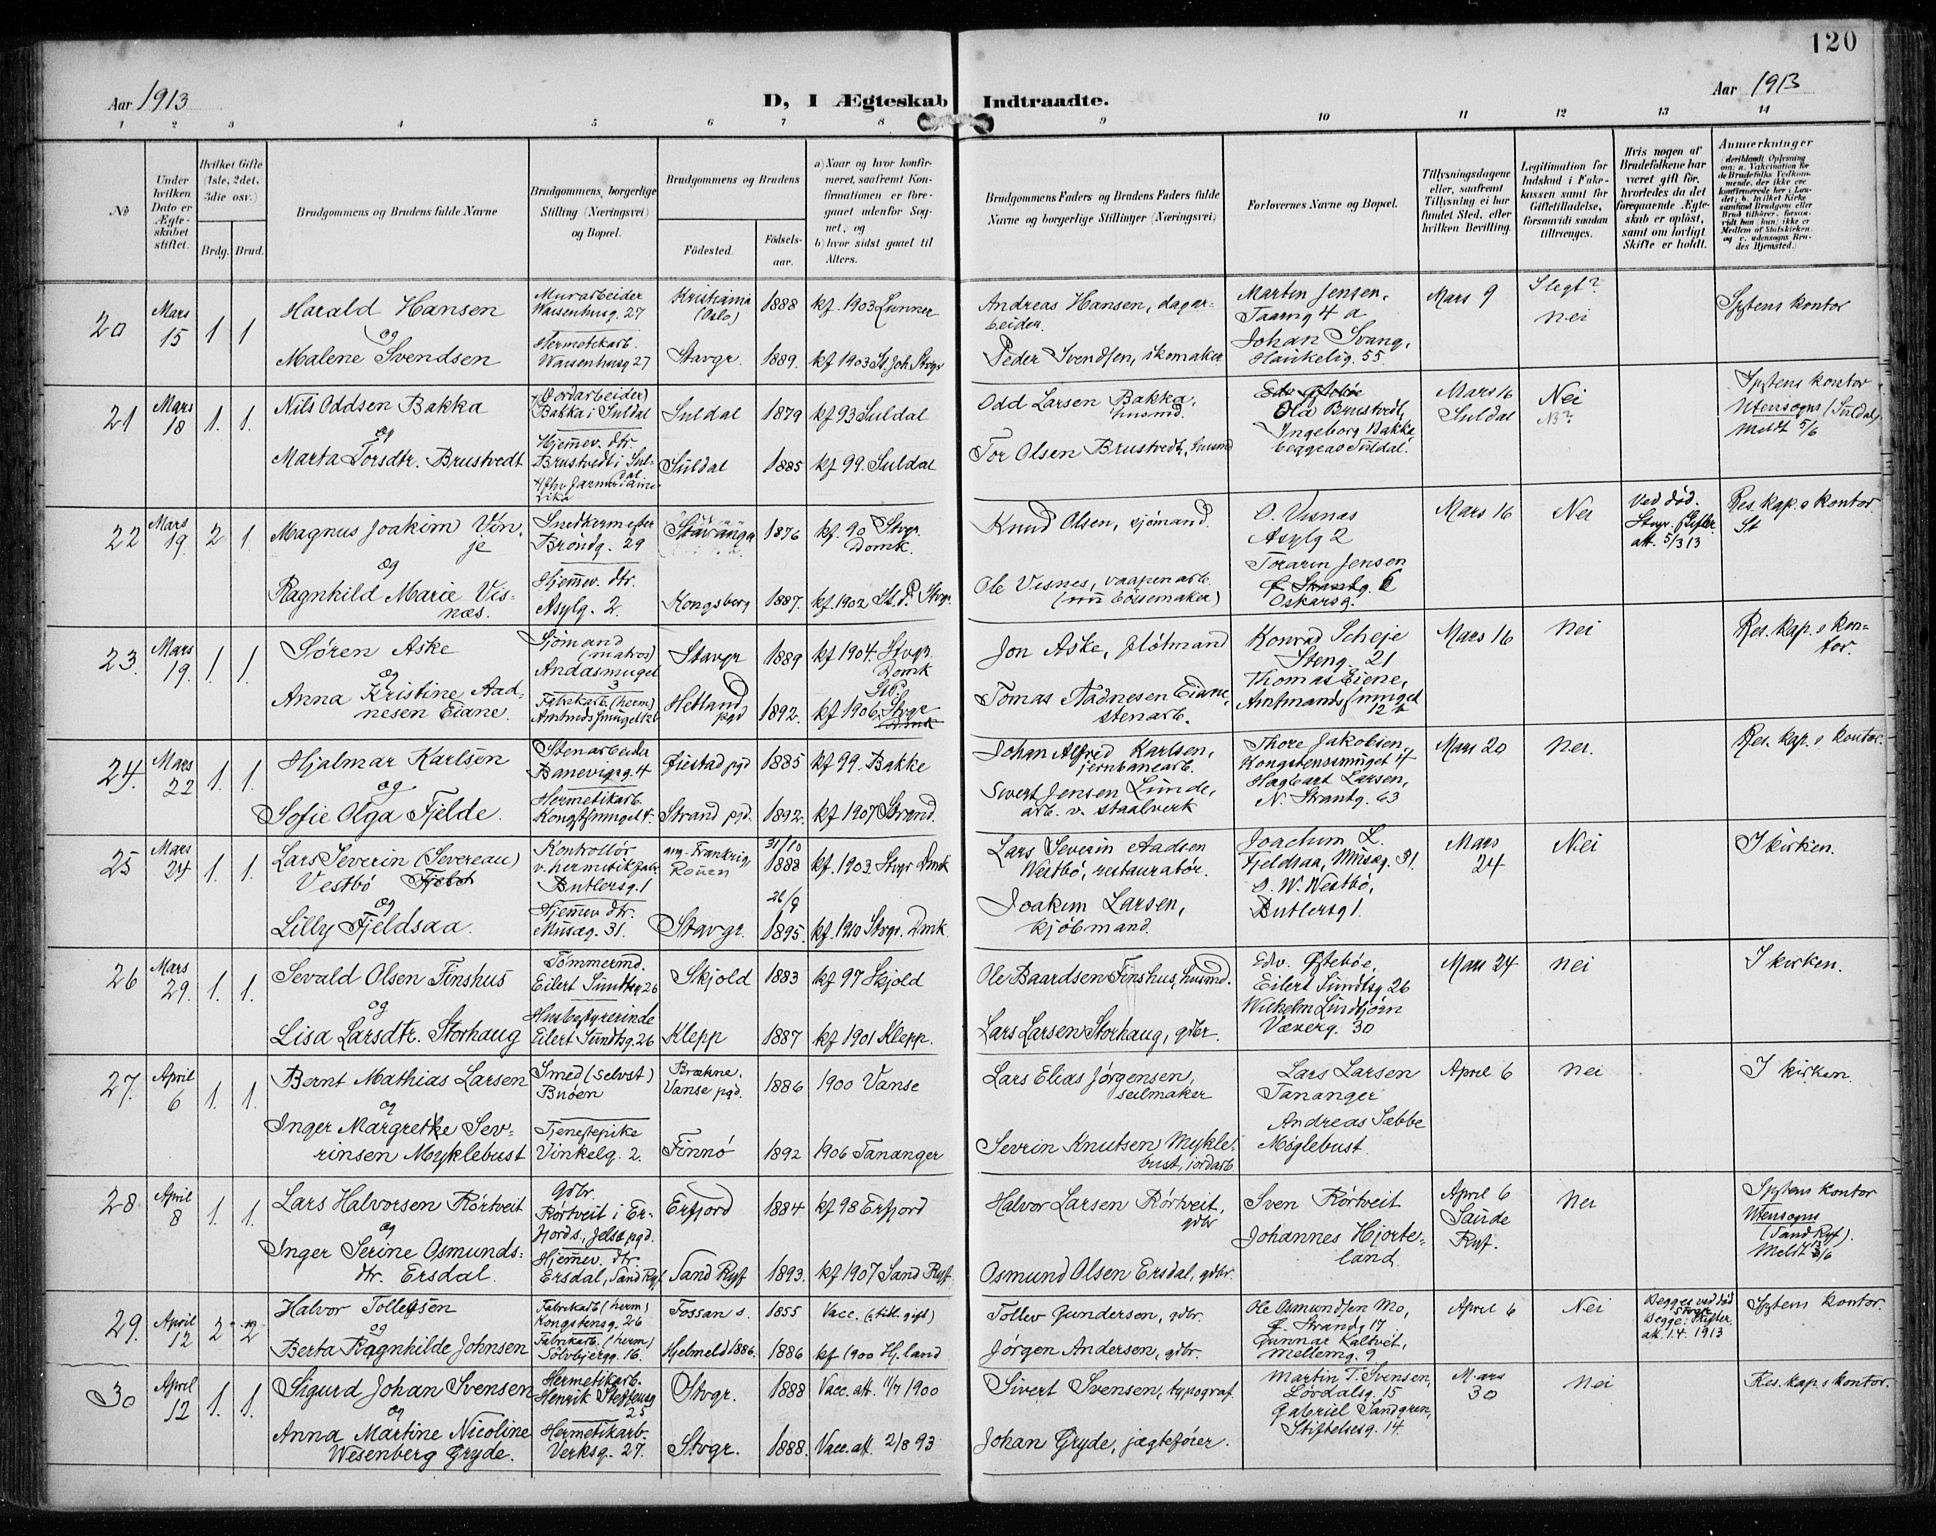 120
Aar 1913
D, I Ægteskab Indtraadte.
Aar 1913
1 2 3 4 5 6 7 8 9 10 11 12 13 14
No
Under hvilken Dato er Ægteskabet stiftet.
Hvilket Gifte (1ste, 2det, 3die osv.)
Brdg. Brud.
Brudgommens og Brudens fulde Navne
Brudgommens borgerlige Stilling (Næringsvei) og Bopæl.
Brudgommens og Brudens
Fødested.
Fødselsaar.
a) Naar og hvor konfirmeret, saafremt Konfirmationen er foregaaet udenfor Sognet, og
b) hvor sidst gaaet til Alters.
Brudgommens Faders og Brudens Faders fulde Navne og borgerlige Stillinger (Næringsvei)
Forlovernes Navne og Bopæl.
Tillysningsdagene eller, saafremt Tillysning ei har fundet Sted, efter hvilken Bevilling.
Legitimation for Indskud i Enkekassen samt for Giftetilladelse, forsaavidt saadan tiltrænges.
Hvis nogen af Brudefolkene har været gift før, hvorledes da det foregaaende Ægteskab er opløst, samt om lovligt Skifte er holdt.
Anmærkninger
20 Mars 15 1. 1
Harald Hansen
og
Malene Svendsen
Murarbeider
Waisenhusg. 27
Hermetikarb.
Waisenhusg 27
Kristiania (Oslo) 1888 kf. 1903 Lunner
Stavgr. 1889. kf 1903 St. Joh Stvgr
Andreas Hansen, dagarbeider.
Peder Svendsen, skomaker
Martin Jensen,
Taarng 4 a
Johan Svang,
Haukelig. 55
Mars 9
Slegt?
Nei
Sptens kontor
21 Mars 18 1. 1.
Nils Oddsen Bakka
og
Marta Torsdtr. Brustvedt
(Jordarbeider)
Bakka i Suldal
Hjemmev. dtr.
Brustvedt i Suldal
Suldal 1879 kf 93 Suldal
Suldal 1885 kf 99. Suldal
Odd Larsen Bakka, husmd.
Tor Olsen Brustvedt, husmd
Ola Brustvedt,
Ingeborg Bakka
Suldal.
Mars 16
Suldal
Nei
N?
Sptens kontor
Utensogns (Suldal)
Meldt 5/6
22 Mars 19 2 1.
Magnus Joakim Vinje
og
Ragnhild Marie Visnæs.
Snedkermester
Brøndg. 29
Hjemmev. dtr.
Asylg. 2
Stavanger 1876 kf. 90 Stvgr. Domk.
Kongsberg 1887. kf. 1902 St. P. Stvgr.
Knud Olsen, sjømand.
Ole Visnes, vaapenarb. (nu bøssemaker)
O. Visnas
Asylg 2
Torarin Jensen
Oskarsg. 6
Mars 16
Nei
Ved død.
Stvgr. skifteratt. 5/3 13
Res. kap. s kontor
St
23. Mars 19. 1. 1.
Søren Aske
og
Anna Kristine Aadnesen Eiane.
Sjømand (matros)
Andasmuget 3
Fabrikarb. (herm)
Stavgr 1889 kf 1904. Stvgr. Domk
Hetland pgd 1892. kf 1906. Stvgr
Jon Aske, fløtmand
Tomas Aadnesen Eiane, stenarb.
Konrad Scheje
Steng. 21
Thomas Eiene,
Amtmandssmuget 12 b
Mars 16
Nei
Res. kap. s kontor.
24. Mars 22 1. 1.
Hjalmar Karlsen
og
Sofie Olga Fjelde.
Stenarbeider
Banevigsg. 4
Hermetikarb.
Kongstsmuget 4.
Øiestad pgd 1885 kf 99. Bakke
Strand pgd. 1892. kf 1907 Strand.
Johan Alfred Karlsen, jernbanearb.
Sivert Jensen Lunde, arb. v. staalverk
Thore Jakobsen,
Kongstensmuget 4
Hagbart Larsen,
N. Strandg. 63
Mars 20
Nei.
Res. kap. s kontor.
25 Mars 24 1. 1.
Lars Severin (Severeau)
Vestbø
og
Lilly Fjeldsaa.
Kontrollør
v. hermetikfabr.
Butlersg. 1
Hjemmev dtr.
Musæg. 31.
Frankrig Rouen 31/10 1888 kf. 1903. Stvgr Dmk
Stavgr. 26/9 1895. kf. 1910 Stvgr. Dmk.
Lars Severin Aadsen Westbø, restauratør.
Joakim Larsen, kjøbmand.
Joachum L. Fjeldsaa, Musæg. 31.
S. W. Westbø,
Butlersg 1.
Mars 24
Nei
I kirken.
26 Mars 29. 1. 1.
Sevald Olsen Finshus
og
Lisa Larsdtr. Storhaug
Tømmermd.
Eilert Sundtsg 26
Husbestyrerinde
Eilert Sundtsg. 26
Skjold 1883 kf 97 Skjold
Klepp 1887 kf 1901 Klepp.
Ole Baardsen Finshus, husmd.
Lars Larsen Storhaug, gdbr.
Edv. Østebøe,
Eilert Sundtsg 26
Wilhelm Lindtjørn
Væverg. 30
Mars 24
Nei
I kirken.
27. April 6 1. 1.
Bernt Mathias Larsen
og
Inger Margrethe Sevrinsen Myklebust
Smed (selvst)
Buøen
Tjenestepike
Vinkelg. 2.
Brækne, Vanse pgd. 1886 1900 Vanse
Finnø 1892 1906 Tananger
Lars Elias Jørgensen, seilmaker
Sevrin Knutsen Myklebust, jordarb
Lars Larsen
Tananger
Andreas Sæbbe
Møglebust.
April 6
Nei
I kirken.
28 April 8 1. 1.
Lars Halvorsen Rørtveit
og
Inger Serine Osmundsdtr. Ersdal.
Gdbr.
Rørtveit i Erfjords., Jelse pgd.
Hjemmev. dtr.
Ersdal, Sand Ryf.
Erfjord 1884 kf 98 Erfjord
Sand Ryf 1893. kf 1907 Sand Ryf.
Halvor Larsen Rørtveit, gdbr
Osmund Olsen Ersdal, gdbr.
Sven Rørtveit
Johannes Hjorteland.
April 6
Saude Ryf.
Nei
Sptens kontor
Utensogns
(Sand Ryf).
29. April 12 2 2
Halvor Tollefsen
og
Berta Ragnhilde Johnsen
Fabrikarb (herm)
Kongstensg. 26
Fabrikarb. (herm)
Sølvbjergg. 16.
Fossan s. 1855 Vacc. (gift)
Hjelmeld 1886. 1886 kf 1900 Hj.land
Tollev Gundersen, gdbr.
Jørgen Andersen, gdbr.
Ole Osmundsen Mo,
Ø. Strandg 17
Gunnar Kaltveit,
Mellemg. 9
April 6
Nei
Begges ved død
Begge: Stvgr. skifteratt. 1.4. 1913
Sptens kontor.
30 April 12 1. 1.
Sigurd Johan Svensen
og
Anna Martine Nicoline
Wesenberg Gryde.
Hermetikarb.
Henrik Steffensg 25
Hermetikarb.
Verksg. 27.
Stvgr. 1888 Vacc. att. 11/7 1900
Stvgr. 1888. Vacc. att. 2/8 93
Sivert Svensen, typograf.
Johan Gryde, jægtefører.
Martin T. Svensen,
Lørdalsg. 15
Gabriel Sandgren,
Stiftelsesg. 14.
Mars 30
Nei
Res. kap. s kontor.